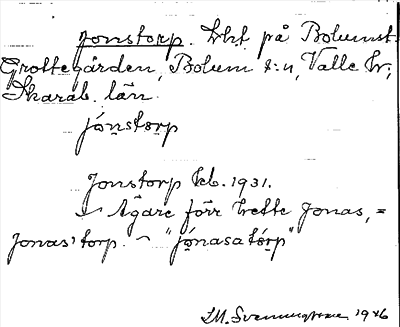 Jonstorp. Lht på Bolumst.
Grottegården, Bolum s:n, Valle hr,
Skarab. län.
jónstorp
Jonstorp Eeb. 1931.
Ägare förr hette Jonas, =
Jonas' torp. ~ "jónasatórp"
1946